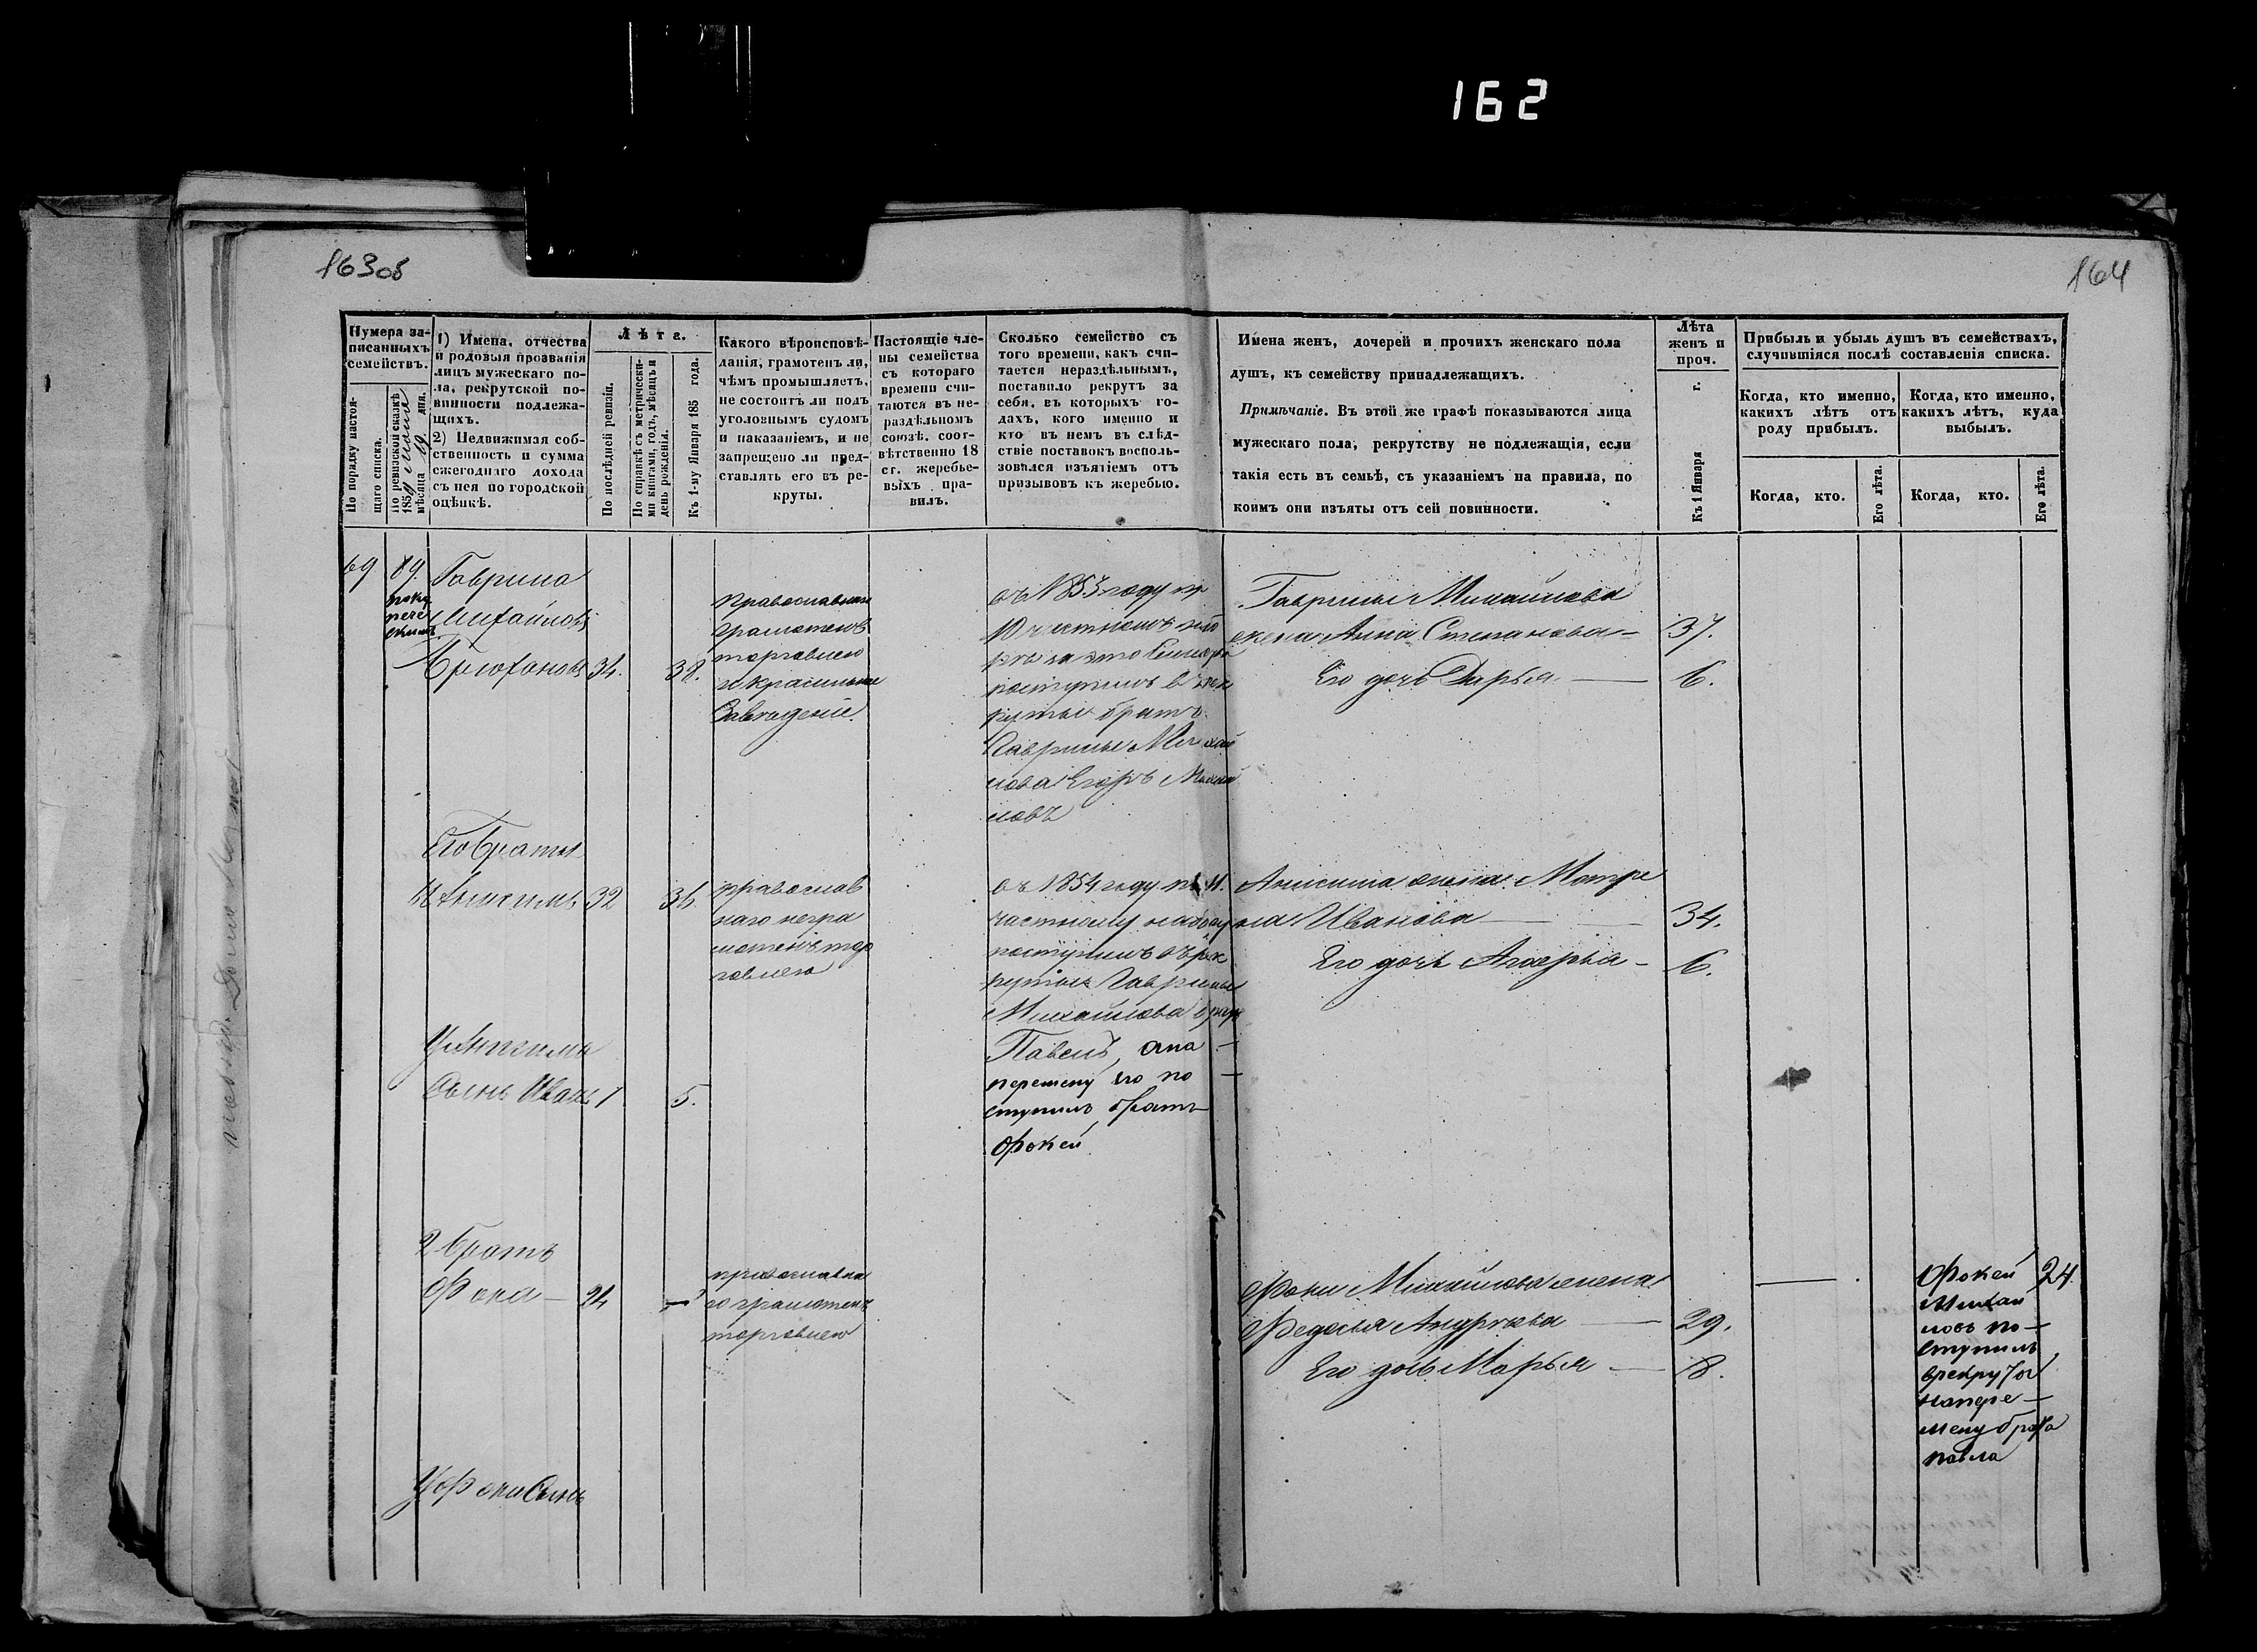 162
163об
164
Нумера за-
писанныхъ
семействъ.
По порядку настоя-
щаго списка.
По ревизской сказкѣ
185
мѣсяца 19 дня.
1) Имена, отчества
и родовыя прозванія
лицъ мужескаго по-
ла, рекрутской по-
винности подлежа-
щихъ.
2) Недвижимая соб-
ственность и сумма
ежегоднаго дохода
съ нея по городской
оцѣнкѣ.
Лѣта.
По послѣдней ревизіи.
По справкѣ съ метрически-
ми книгами, годъ, мѣсяцъ и
день рожденія.
Къ 1-му Января 185 года.
Какого вѣроисповѣ-
данія, грамотенъ ли,
чѣмъ промышляетъ,
не состоитъ ли подъ
уголовнымъ судомъ
и наказаніемъ, и не
запрещено ли пред-
ставлять его въ ре-
круты.
Настоящіе чле-
ны семейства
съ котораго
времени счи-
таются въ не-
раздѣльномъ
союзѣ. соот-
вѣтственно 18
ст. жеребье-
выхъ пра-
вилъ.
Сколько семейство съ
того времени, какъ счи-
тается нераздѣльнымъ,
поставило рекрутъ за
себя, въ которыхъ го-
дахъ, кого именно и
кто въ немъ въ слѣд-
ствіе поставокъ восполь-
зовался изъятіемъ отъ
призывовъ къ жеребью.
Имена женъ, дочерей и прочихъ женскаго пола
душъ, къ семейству принадлежащихъ.
Примѣчаніе. Въ этой же графѣ показываются лица
мужескаго пола, рекрутству не подлежащія, если
такія есть въ семьѣ, съ указаніемъ на правила, по
коимъ они изъяты отъ сей повинности.
Лѣта
женъ и
проч.
Къ 1 Января г.
Прибыль и убыль душъ въ семействахъ,
случившіяся послѣ составленія списка.
Когда, кто именно,
какихъ лѣтъ отъ
роду прибылъ.
Когда, кто именно,
какихъ лѣтъ, куда
выбылъ.
Когда, кто.
Его лѣта.
Когда, кто.
Его лѣта.
69 89. Гаврила
Михайловъ
Брюхановъ 34. 38.
Православнаго
грамотенъ
торговлею
и красильное
Заведеніе.
въ 1853 году по
10 частному набо
ру за это семейство
поступилъ въ рек
руты братъ
Гаврилы Михай
лова Егоръ Михай
ловъ
Гаврилы Михайлова
жена Анна Степанова 37.
Его дочь Дарья 6.
Его братья
1й Анисимъ 32 36
православ
наго негра
мотенъ тор
говлею
въ 1854 году по 11.
частному набору
поступилъ въ рек
руты Гаврилы
Михайлова братъ
Павелъ, а на
перемену его по
ступилъ братъ
Фокей
Анисима жена Матре
на Иванова 34.
Его дочь 6.
У Анисима
Сынъ Иванъ 1 5.
2 братъ
Фока 24
православна
го грамотенъ
торговлею
Фоки Михайлова жена
Федосья Андреева 29.
Его дочь Марья 8.
Фокей 24.
Михай
ловъ по-
ступилъ
в рекруты
на пере-
мену брата
павла
У Фоки Сынъ